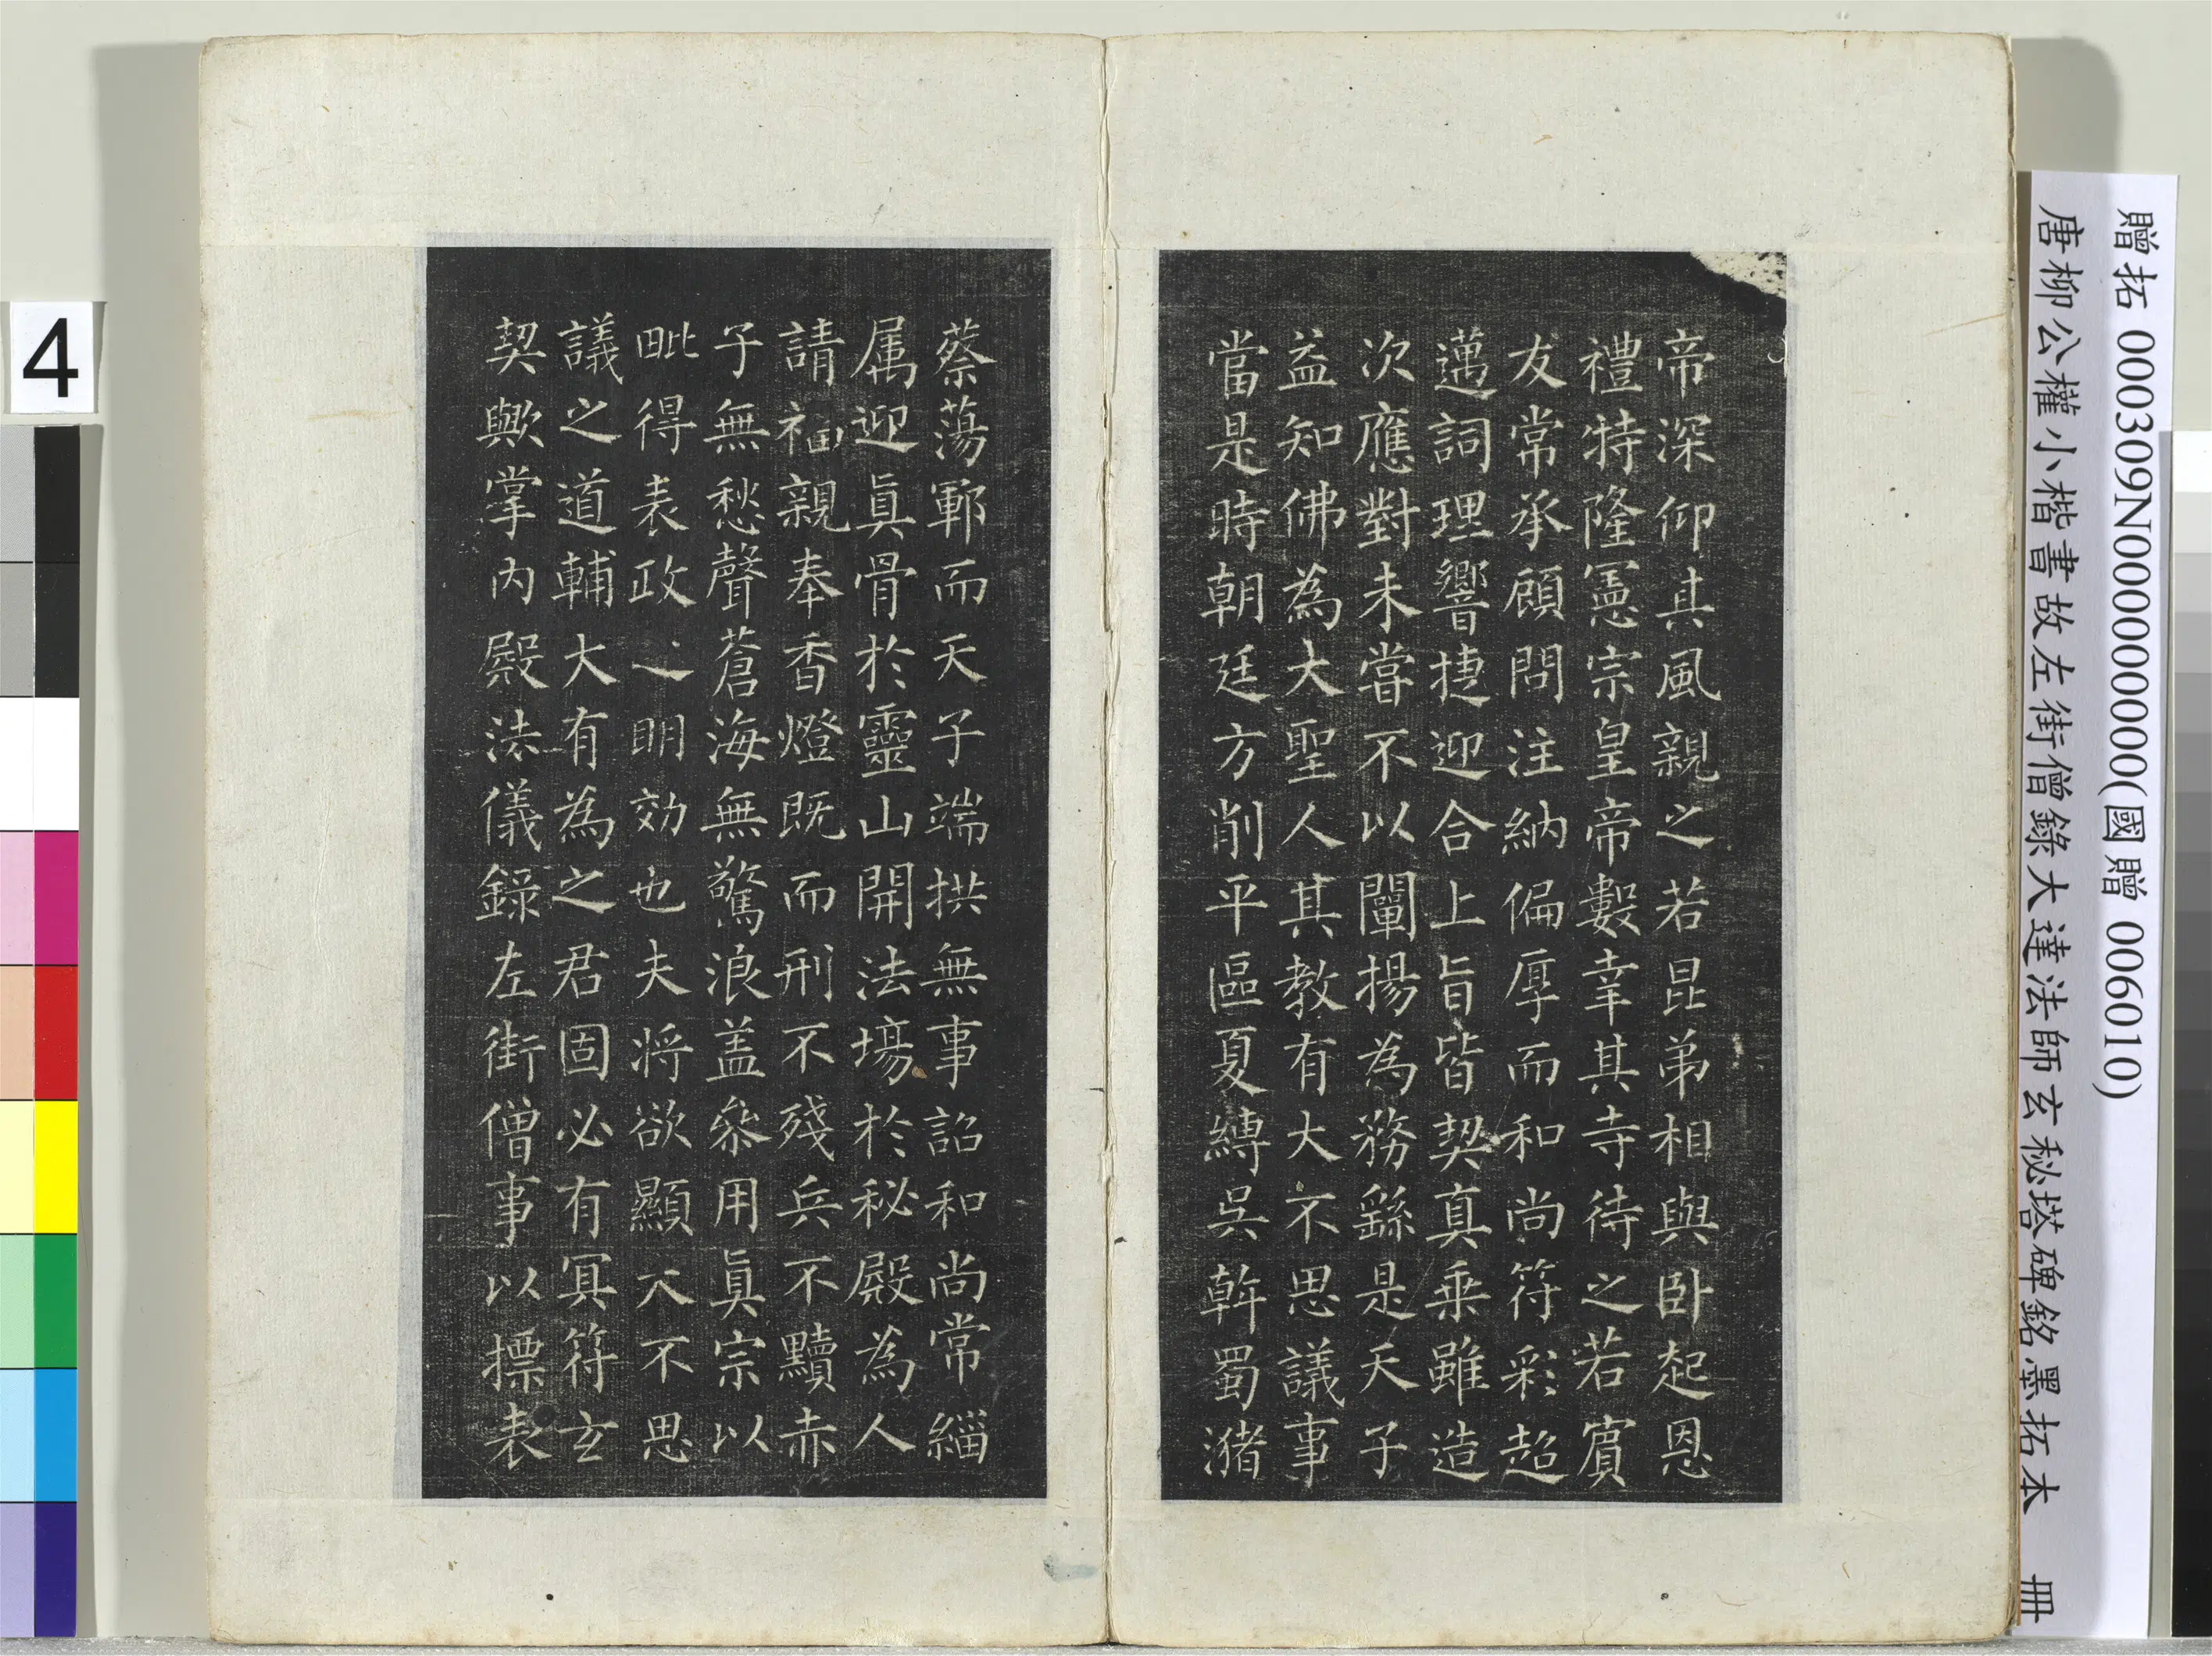 贈拓 000309N000000000(國贈 006010)
唐柳公權小楷書故左街僧錄大達法師玄秘塔碑銘墨拓本 冊
帝深仰其風親之若昆弟相與卧起恩
禮特隆憲宗皇帝數幸其寺待之若賓
友常承顧問注納偏厚而和尚符彩超
邁詞理響捷迎合上旨皆契真乘雖造
次應對未嘗不以闡揚為務繇是天子
益知佛為大聖人其教有大不思議事
當是時朝廷方削平區夏縛吳斡蜀瀦
蔡蕩鄆而天子端拱無事詔和尚常緇
属迎眞骨於靈山開法場於秘殿為人
請福親奉香燈既而刑不殘兵不黷赤
子無愁聲蒼海無驚浪盖叅用眞宗以
毗得表政之明効也夫将欲顯大不思
議之道輔大有為之君固必有冥符玄
契歟掌內殿法儀錄左街僧事以摽表
4